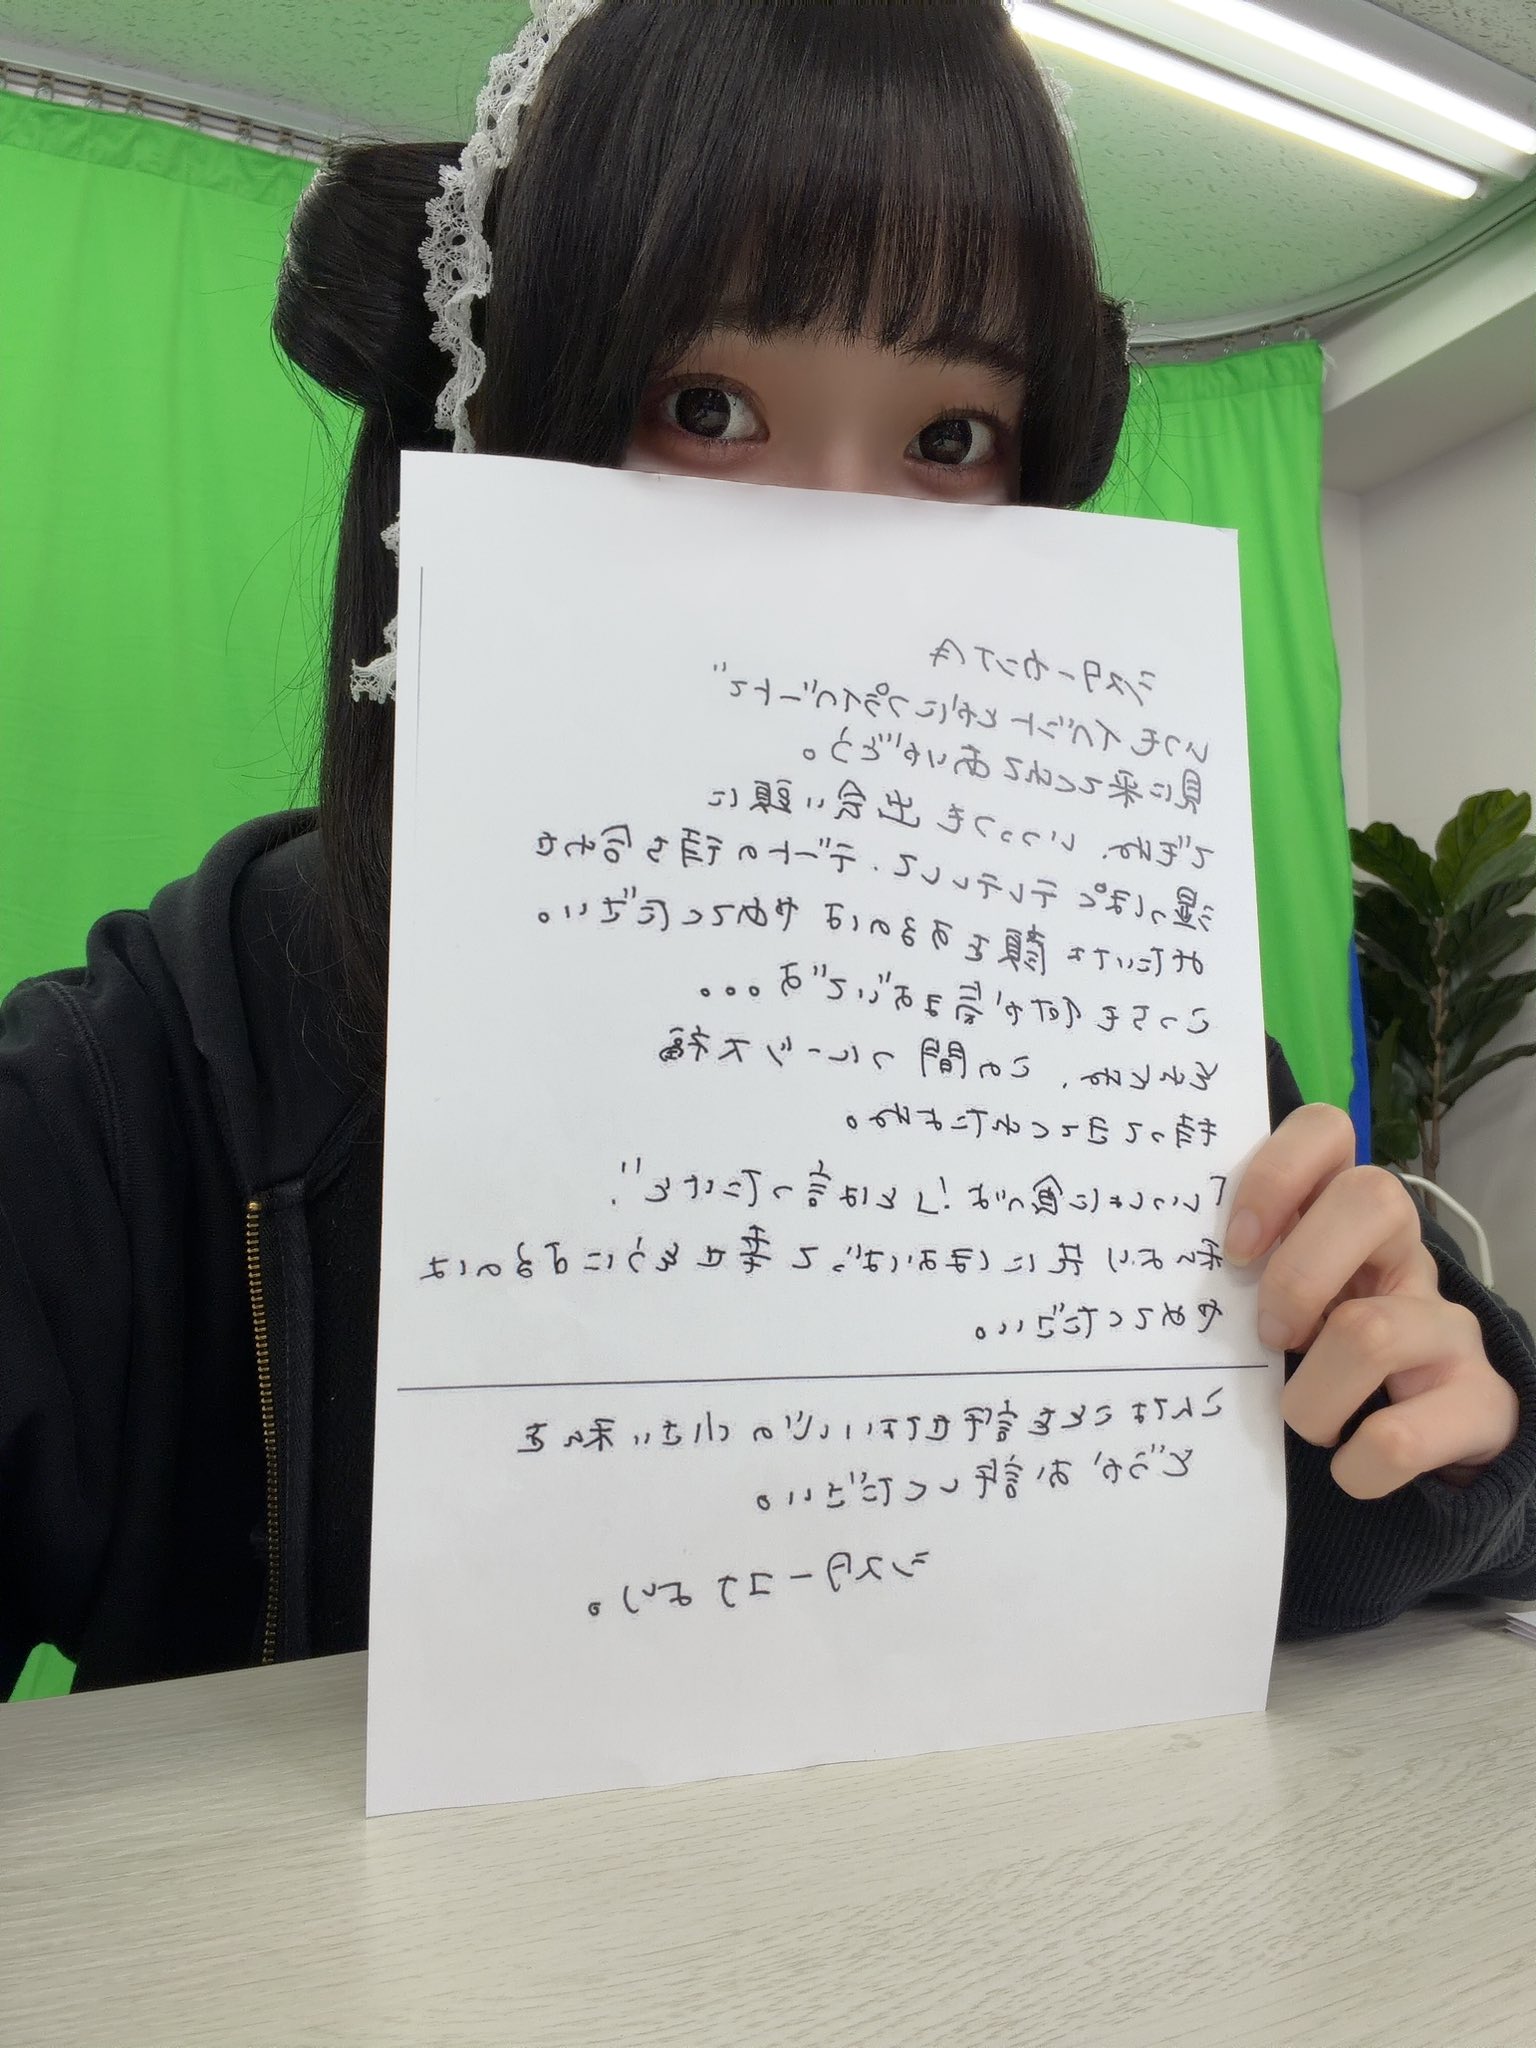 シスターカンナへ
いつもイベントとかにプライベートで
見に来てくれてありがとう。
でもね、いっつも出会い頭に
湿っぽくテレテレして、デートの待ち合わせ
みたいな顔をするのはやめてください。
こっちも何か気まずいです。。。
それとね、この間フルーツ大福
持ってきてくれたよね。
「いっしょに食べよ!」とは言ったけど、
私より先にほおばって幸せそうにするのは
やめてください。
こんなことを許せない心の小さい私を
どうかお許しください。
シスターコナより。